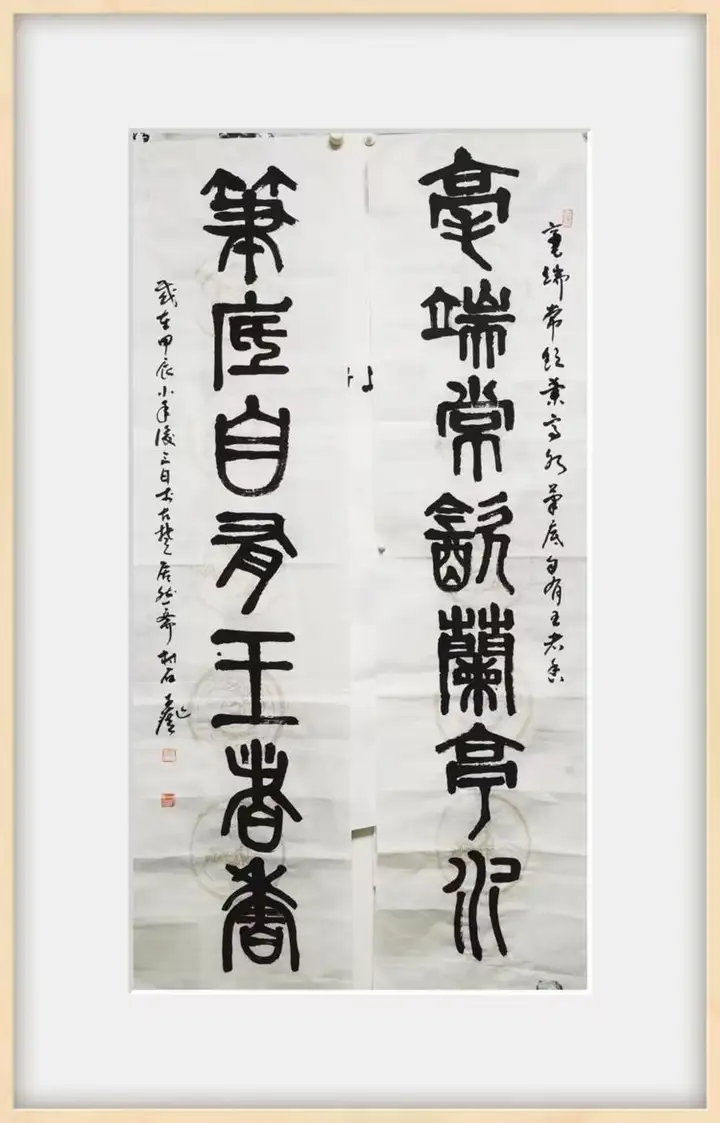 毫端常飲蘭亭水筆底自有王者香
毫端常飲蘭亭水
筆底自有王者香
歲在甲辰小年後三日書古楚居然齋